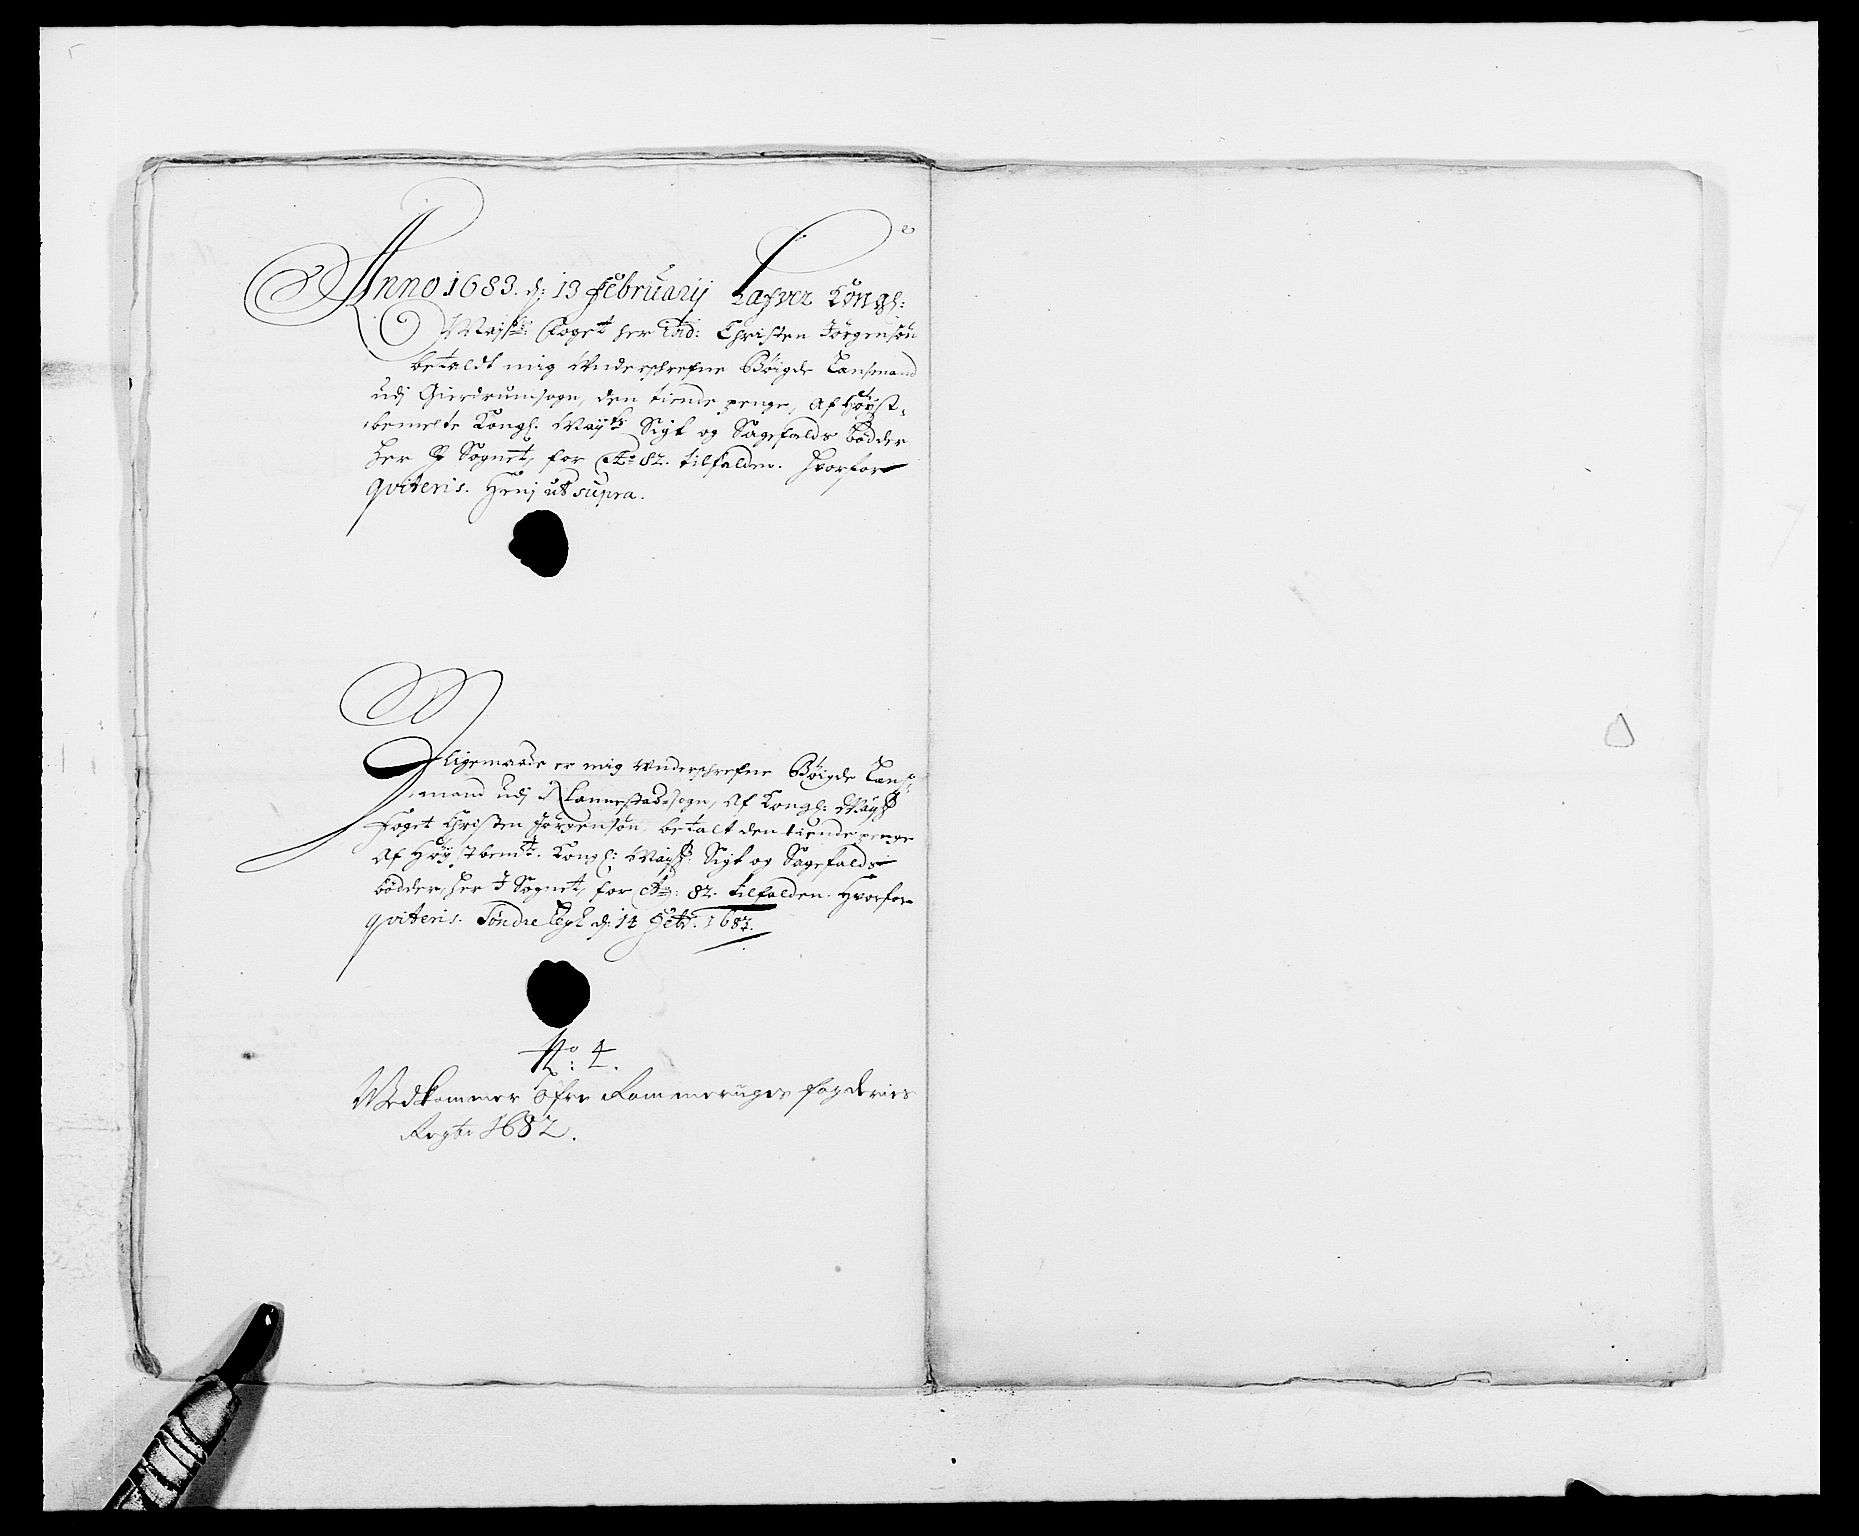 Anno 1683. d: 13 Februarij Hafver Kongl:
Mayst: Foget her Edd: Christen Jörgensön
betaldt mig Underschrefne Böigde Lensmand
udj Gierdrumsogn, den tiende penge, Af Höyst-
bemelte Kongl: Mayts Sigt og Sagefalds bödder
her J Sognet, for Ao 82. tilfalden. Hvorfor
qviteris. ut supra.
Jligemaade er mig Underschrefne Böigde Lens-
mand udj Nannestadsogn, Af Kongl: Mayts
Foget Christen Jörgensön, betalt den tiende penge
Af Höystbemte. Kongl: Mayts: Sigt og Sagefalds
bödder, her J Sognet, for Ao: 82. tilfalden. Hvorfor
qviteris. Söndre d: 14 Febr: 1683.
No: 4.
Vedkommer Öfre Rommerugs fogderies
Regtn 1682.